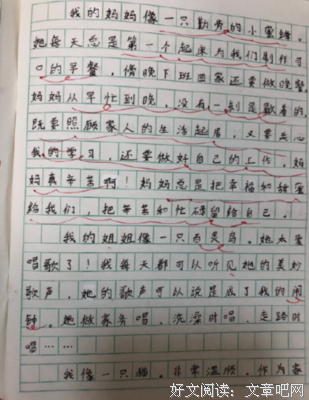 我的妈妈像一只勤劳的小蜜蜂。
她每天总是第一个起来为我们制作可
口的早餐，傍晚下班回家还要做晚餐。
妈妈从早忙到晚，没有一刻是歇着的，
既要照顾家人的生活起居，又要关心
我的学习，还要做好自己的工作，妈
妈真辛苦啊！妈妈总是把幸福和甜蜜
给我们，把辛苦和忙碌留给自己。
我的姐姐像一只百灵鸟。她太爱
唱歌了！我每天都可以听见她的美妙
歌声，她的歌声可以说是成了我的闹
钟。她做家务唱，洗澡时唱，走路时
唱……
我像一只猫，非常温顺，作为家
好文阅读：文章吧网